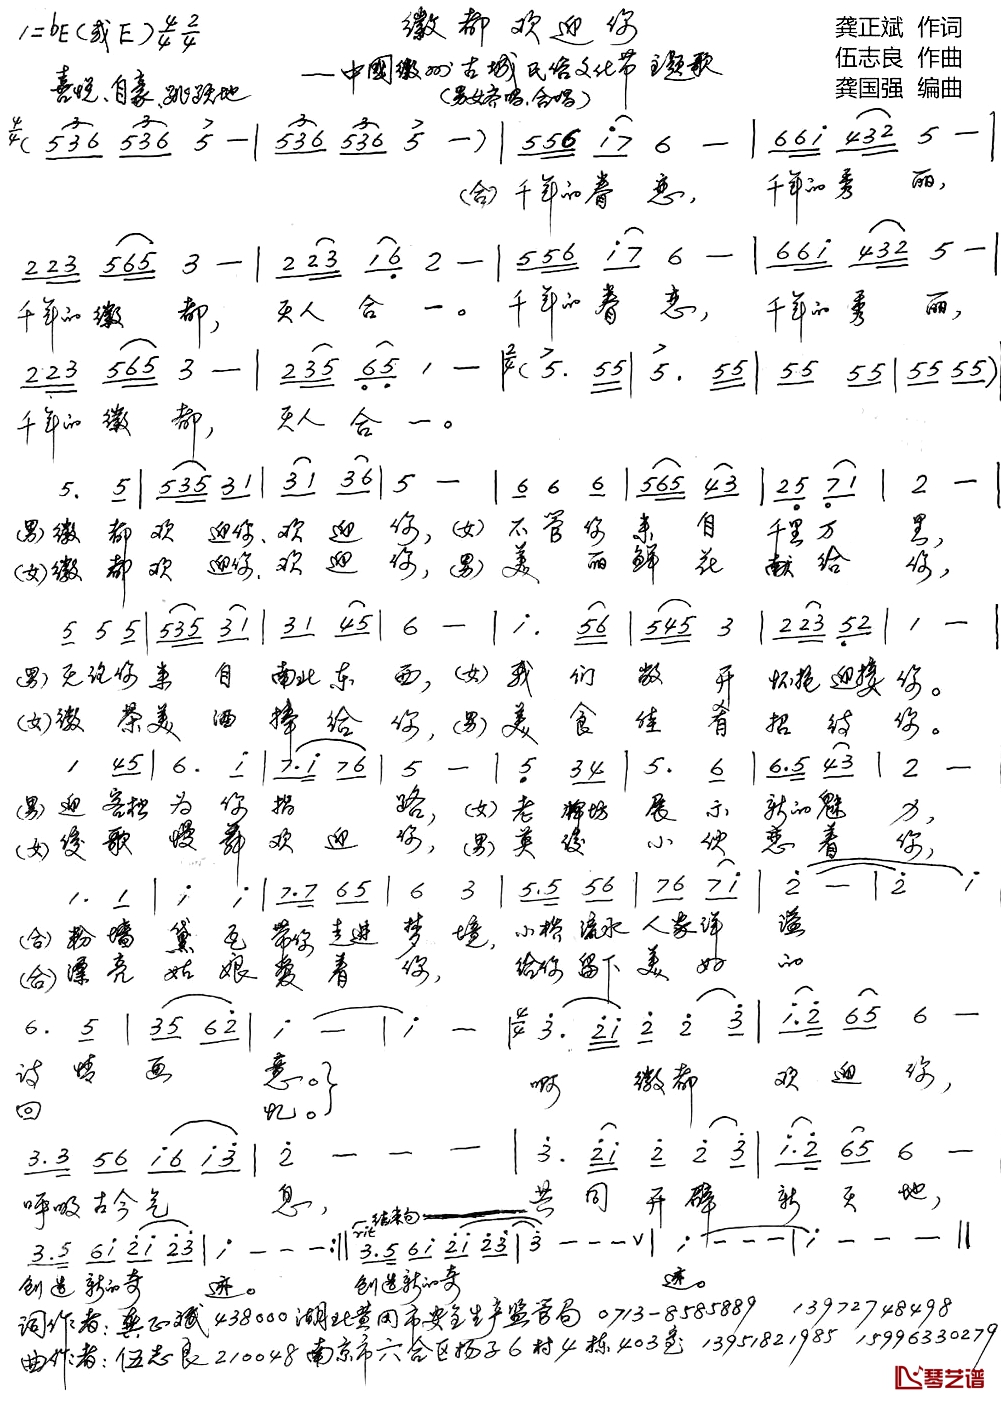 1=bE(或E) 4/4 2/4 徽都欢迎你 龚正斌 作词
——中國徽州古城民俗文化节主题歌 伍志良 作曲
喜悦、自豪、跳跃地 (男女齐唱、合唱) 龚国强 编曲
4/4 ( 536 536 5 - | 536 536 5 - ) | 556 i7 6 - | 66i 432 5 - |
(合) 千年的眷恋, 千年的秀丽,
223 565 3 - | 223 i6 2 - | 556 i7 6 - | 66i 432 5 - |
千年的徽都, 天人合一。千年的眷恋, 千年的秀丽,
223 565 3 - | 235 65 1 - | 2/4 ( 5. 55 | 5. 55 | 55 55 | 55 55 )
千年的徽都, 天人合一。
5. 5 | 535 31 | 31 36 | 5 - | 6 6 6 | 565 43 | 25 71 | 2 - |
(男) 徽都欢迎你、欢迎你, (女) 不管你来自千里万里,
(女) 徽都欢迎你、欢迎你, (男) 美丽鲜花献给你,
5 5 5 | 535 31 | 31 45 | 6 - | i. 56 | 545 3 | 223 52 | 1 - |
(男) 无论你来自南北东西, (女) 我们敞开怀抱迎接你。
(女) 徽茶美酒捧给你, (男) 美食佳肴招待你。
1 45 | 6. i | 7.i 76 | 5 - | 5 34 | 5. 6 | 6.5 43 | 2 - |
(男) 迎客松为你指路, (女) 老牌坊展示新的魅力,
(女) 缓歌慢舞欢迎你, (男) 英俊小伙恋着你,
1. 1 | i i | 7.7 65 | 6 3 | 5.5 56 | 76 7i | 2 - | 2 i
(合) 粉墙黛瓦带你走进梦境, 小桥流水人家洋溢
(合) 漂亮姑娘爱着你, 给你留下美好的
6. 5 | 35 62 | i - | i - | 4/4 3. 2i 2 2 3 | i.2 65 6 -
诗情画意。} 啊 徽都欢迎你,
回忆。}
3.3 56 i6 i3 | 2 - - - | 3. 2i 2 2 3 | i.2 65 6 -
呼吸古今气息, 共同开辟新天地,
rit 结束句
3.5 6i 2i 23 | i - - - :|| 3.5 6i 2i 23 | 3 - - - v | i - - - | i - - - ||
创造新的奇迹。 创造新的奇迹。
词作者: 龚正斌 438000 湖北黄冈市安全生产监管局 0713-8585889 13972748498
曲作者: 伍志良 210048 南京市六合区扬子6村4栋403室 13951821985 15996330279
琴艺谱